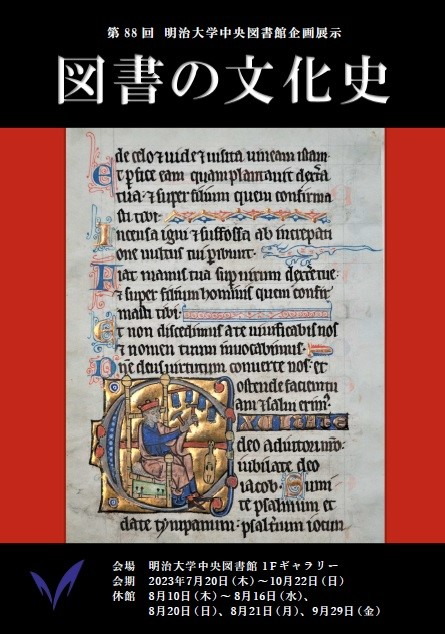 第88回 明治大学中央図書館企画展示
図書の文化史
de celo ⁊ uide ⁊ uisita uineam istam·
Et p̄fice eam quam plantauit dext̄a
tua· ⁊ super filium quem confirma
sti tibi·
Incensa igni ⁊ suffossa ab increpati
one uultus tui p̄ibunt·
Fiat manus tua sup̄ uirum dextere tue·
⁊ super filium hominis quem confir
masti tibi·
Et non discedimus a te uiuificabis nos
⁊ nomen tuum inuocabimus·
Dn̄e deus uirtutum conuerte nos· et
ostende faciem tu
am ⁊ salui erim⁹·
deo adiutori nr̄o·
iubilate deo
iacob· Sumi
te psalmum et
date tympanum· psalterium iocun
会場 明治大学中央図書館 1Fギャラリー
会期 2023年7月20日(木)〜10月22日(日)
休館 8月10日(木)〜8月16日(水)、
8月20日(日)、8月21日(月)、9月29日(金)